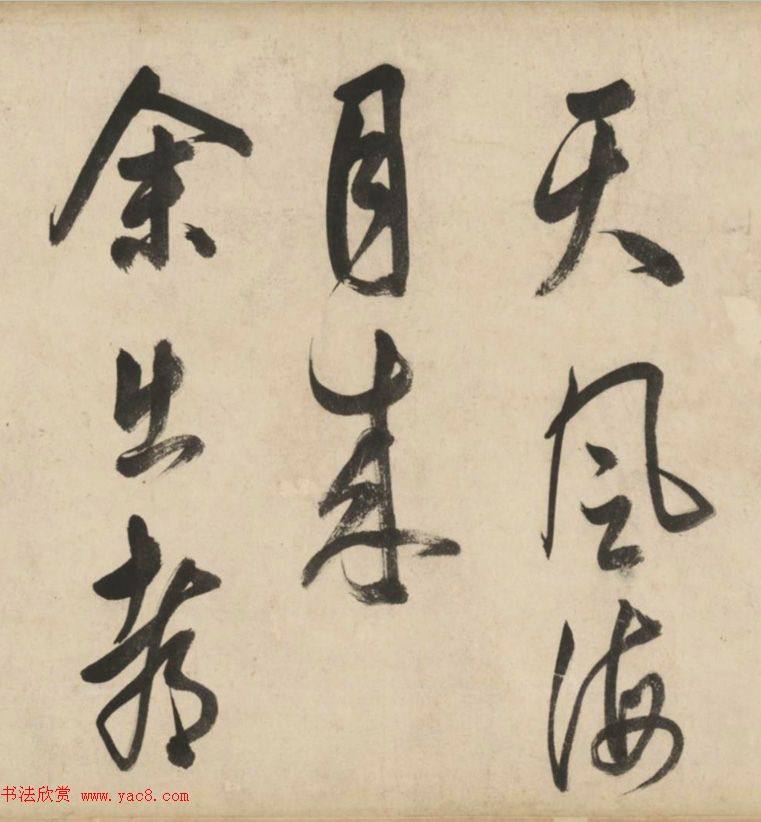 天風海
月
余出都
书法欣赏 www.yac8.com